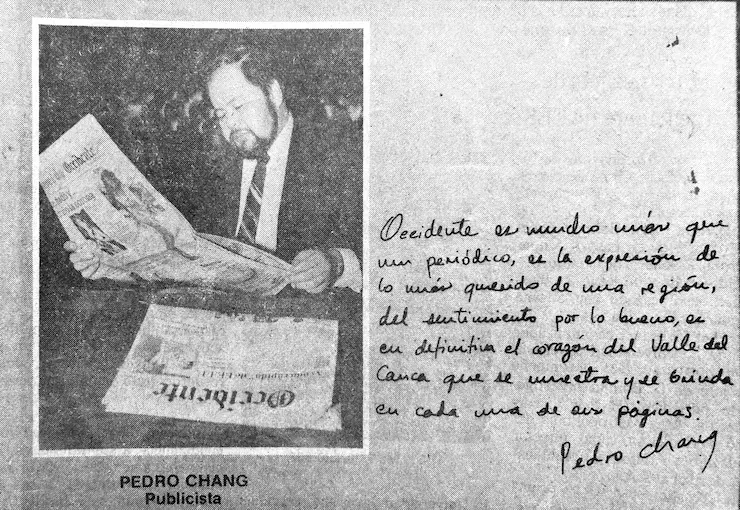 Occidente
Occidente
Occidente es mucho más que
un periódico, es la expresión de
lo más querido de una región,
del sentimiento por lo bueno, es
en definitiva el corazón del Valle del
Cauca que se muestra y se brinda
en cada una de sus páginas.
Pedro Chang
PEDRO CHANG
Publicista